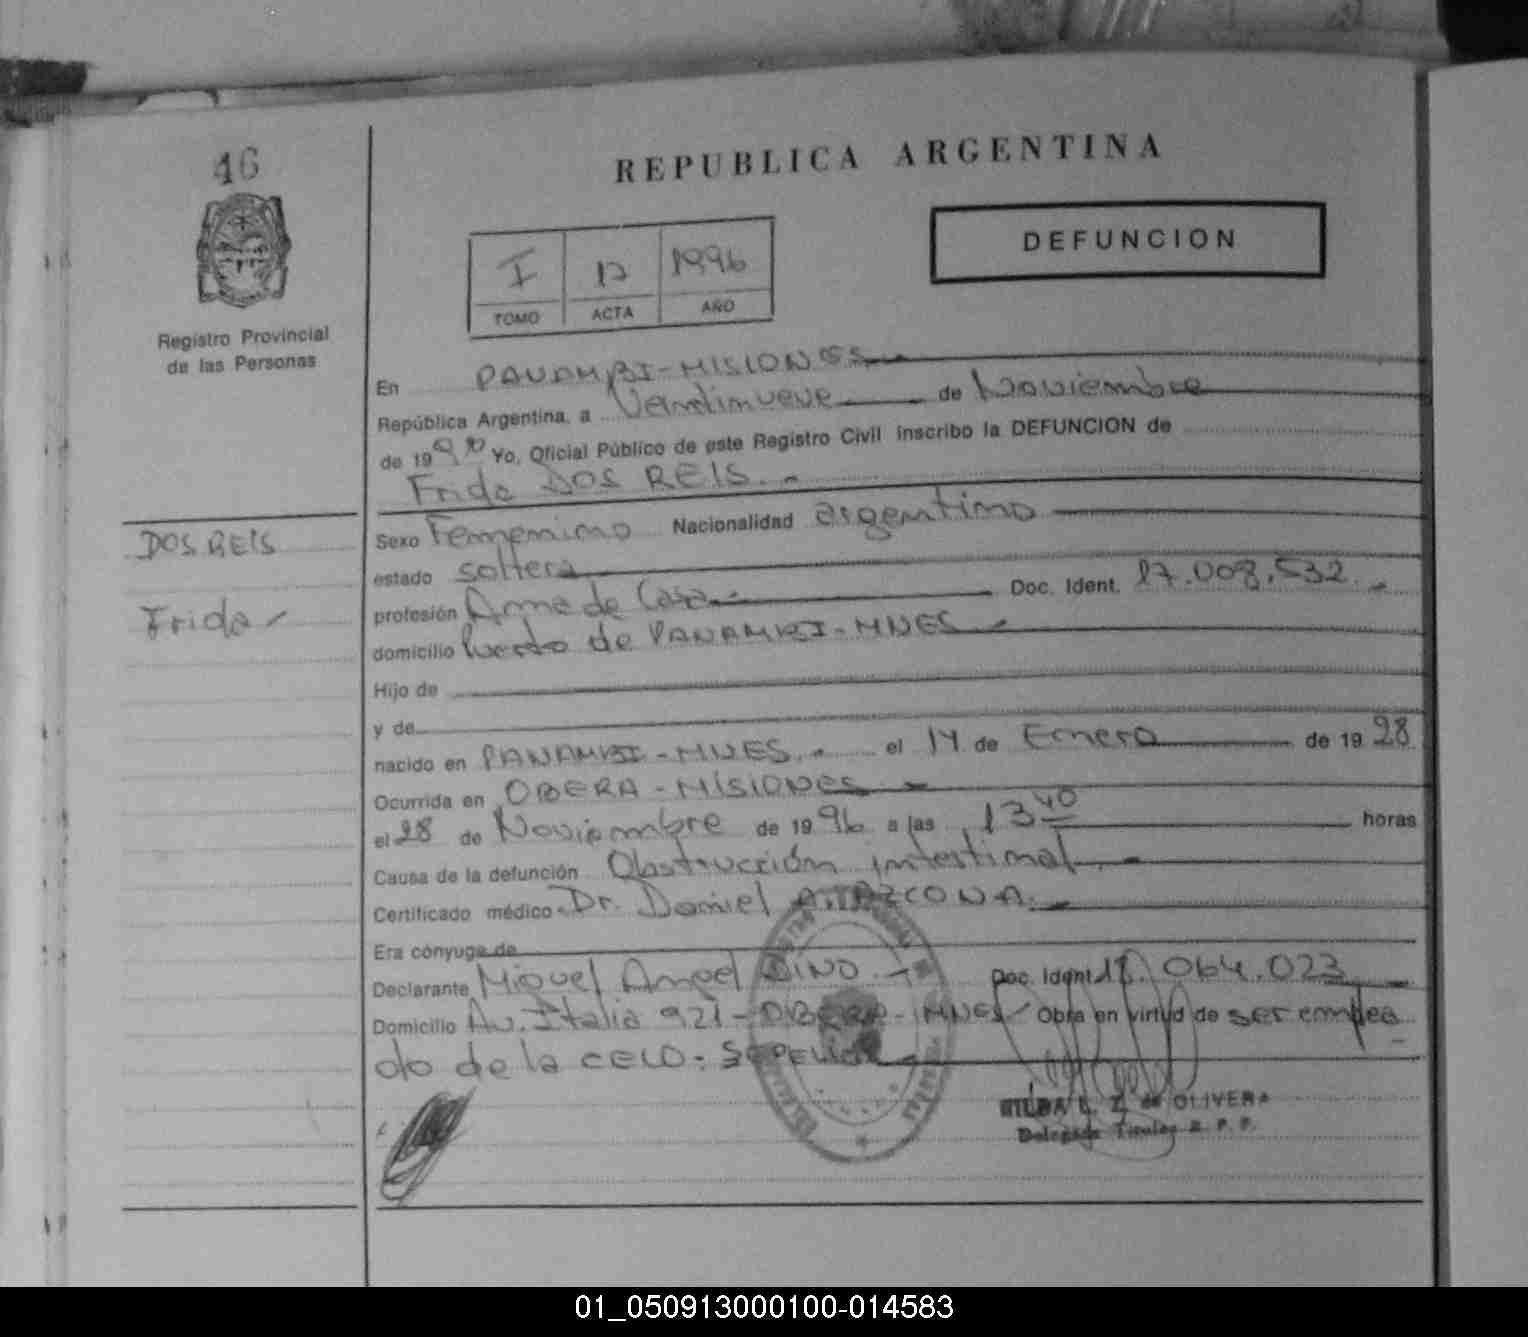 46
REPUBLICA ARGENTINA
DEFUNCION
I 17 1996
TOMO ACTA AÑO
Registro Provincial
de las Personas
En PANAMBI-MISIONES.-
República Argentina, a Veintinueve de Noviembre
de 1996 Yo, Oficial Público de este Registro Civil inscribo la DEFUNCION de
Frida DOS REIS.-
DOS REIS
Frida
Sexo Femenino Nacionalidad argentino
estado soltera
profesión Ama de Casa.- Doc. Ident. 17.008.532.-
domicilio Puerto de PANAMBI-MNES.-
Hijo de
y de
nacido en PANAMBI-MNES.- el 14 de Enero de 19 28
Ocurrida en OBERA-MISIONES.-
el 28 de Noviembre de 19 96 a las 13 40 horas
Causa de la defunción Obstrucción intestinal.-
Certificado médico Dr. Daniel
Era cónyuge de
Declarante Miguel Angel DINO.- Doc. Ident. 18.064.023
Domicilio Av. Italia 921-OBERA-MNES/ Obra en virtud de ser emplea
do de la CELO: SEPELIOS
HILDA E. Z. de OLIVERA
Delegada Titular R. P. P.
01_050913000100-014583